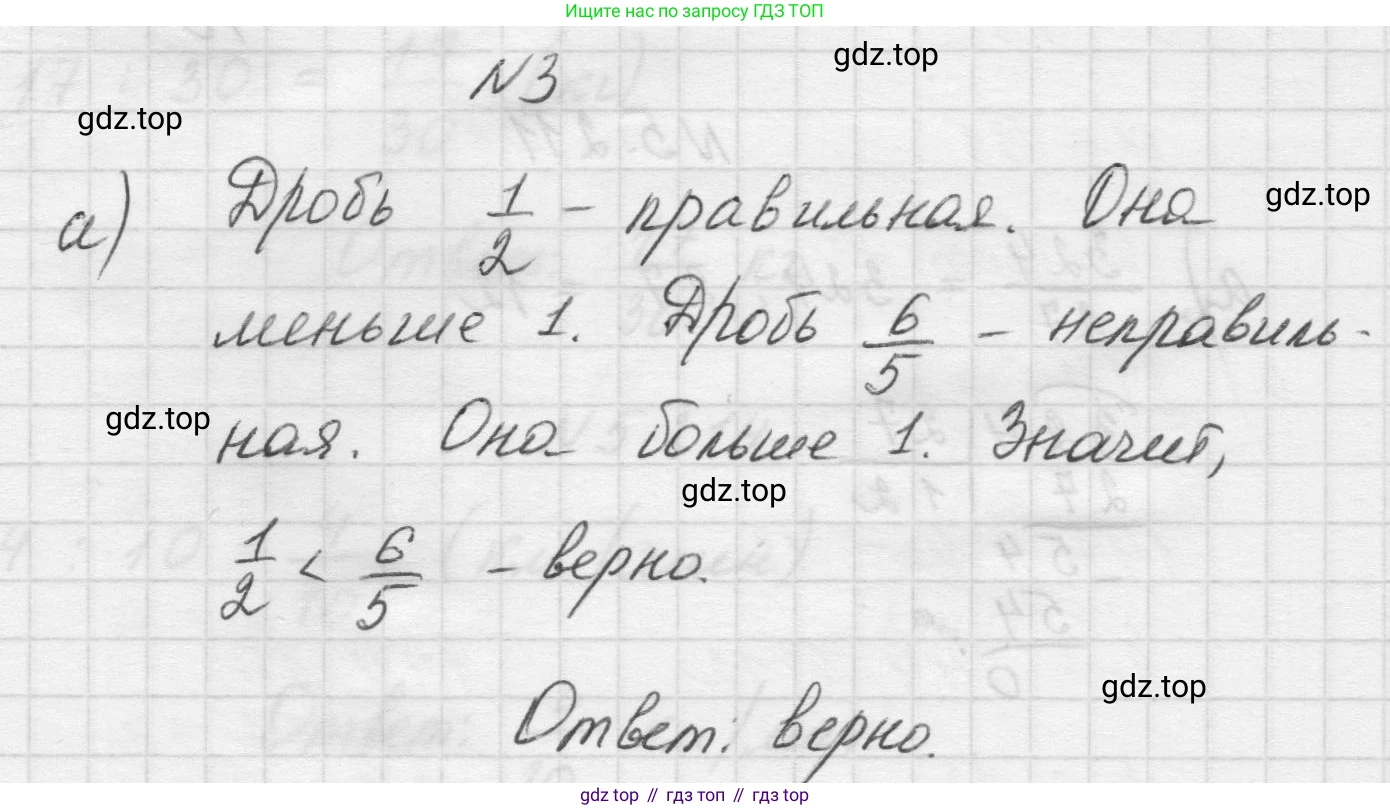 Ищите нас по запросу ГДЗ ТОП
gdz.top
N3
gdz.top
а) Дробь 1/2 – правильная. Она
gdz.top
меньше 1. Дробь 6/5 – неправиль-
gdz.top
ная. Она больше 1. Значит,
gdz.top
1/2 < 6/5 – верно.
gdz.top
Ответ: верно.
gdz top // гдз топ // гдз top